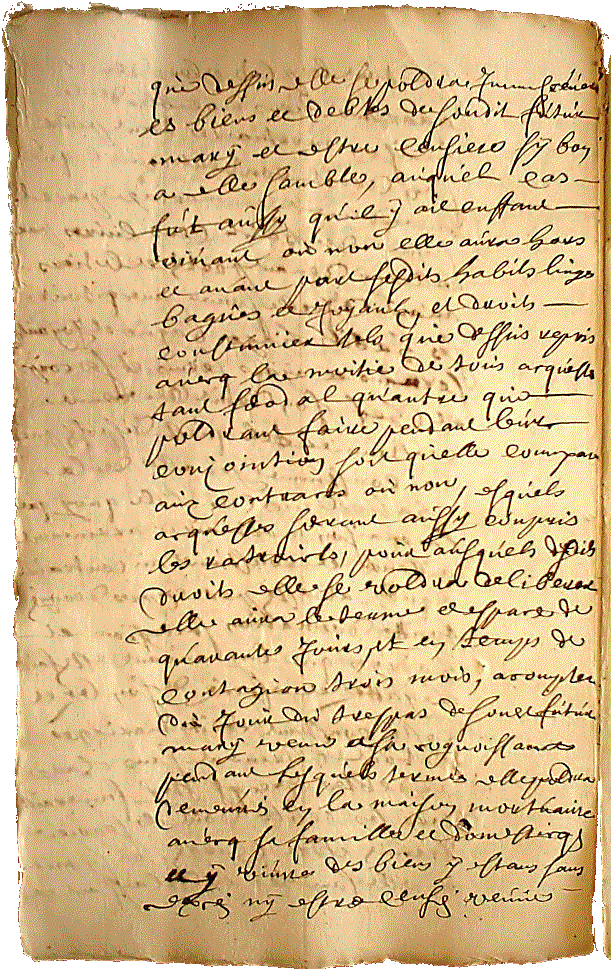 que dessus elle se poldra Immiscuer
es biens et debtes du sondit futur
mary et estre censiere sy bon
a elle samble, auquel cas
fut aussy qu'il y ait enffant
vivant ou non elle aura hors
et avant part sesdits habits linge
bagues et Joyaulx et droits
coustumier tels que dessus repris
avecq la moitie de tous acqueste
tant feodal qu'autre que
poldrant faire pendant leur
conjointion soit quelle compare
aux contracts ou non, esquels
acquestes seront aussy compris
les ratraicts, pour ausquels desdits
droits elle se voldra deliberer
elle aura le terme et espace de
quarante Jours et en temps de
contagion trois mois, a compter
du Jour du trespas de son futur
mary venu a sa cognoissance
pendant lesquels termes elle poldra
demeurer en la maison mortuaire
avecq sa famille et domesticqs
et y vivre des biens y estans sans
exces ny estre censé